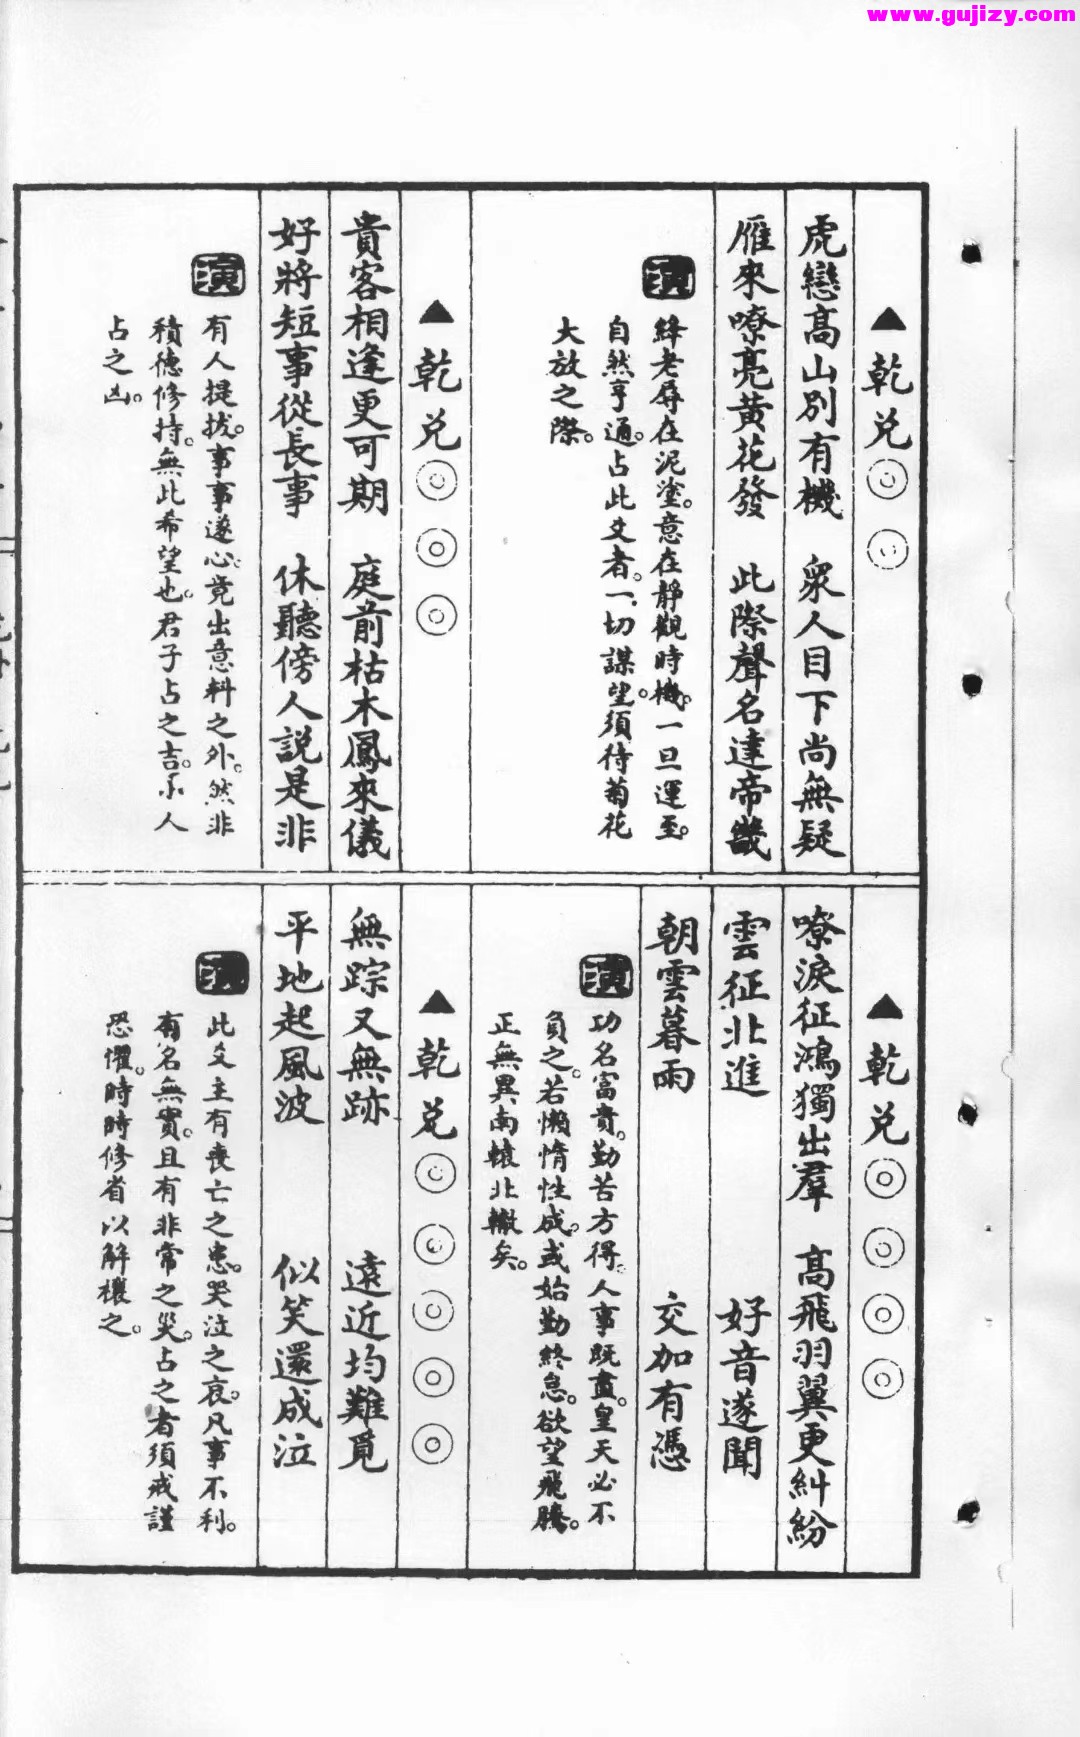 www.gujizy.com
▲乾兌◎◎
虎戀高山別有機　眾人目下尚無疑
雁來嘹亮黃花發　此際聲名達帝畿
演
絳老辱在泥塗。意在靜觀時機。一旦運至。
自然亨通。占此爻者。一切謀望。須待菊花
大放之際。
▲乾兌◎◎◎
貴客相逢更可期　庭前枯木鳳來儀
好將短事從長事　休聽傍人說是非
演
有人提拔。事事遂心。竟出意料之外。然非
積德修持。無此希望也。君子占之吉。小人
占之凶。
▲乾兌◎◎◎◎
嘹淚征鴻獨出羣　高飛羽翼更糾紛
雲征北進　好音遂聞
朝雲暮雨　交加有憑
演
功名富貴。勤苦方得。人事既盡。皇天必不
負之。若懶惰性成。或始勤終怠。欲望飛騰。
正無異南轅北轍矣。
▲乾兌◎◎◎◎◎
無踪又無跡　遠近均難覓
平地起風波　似笑還成泣
演
此爻主有喪亡之患。哭泣之哀。凡事不利。
有名無實。且有非常之災。占之者須戒謹
恐懼。時時修省以解禳之。